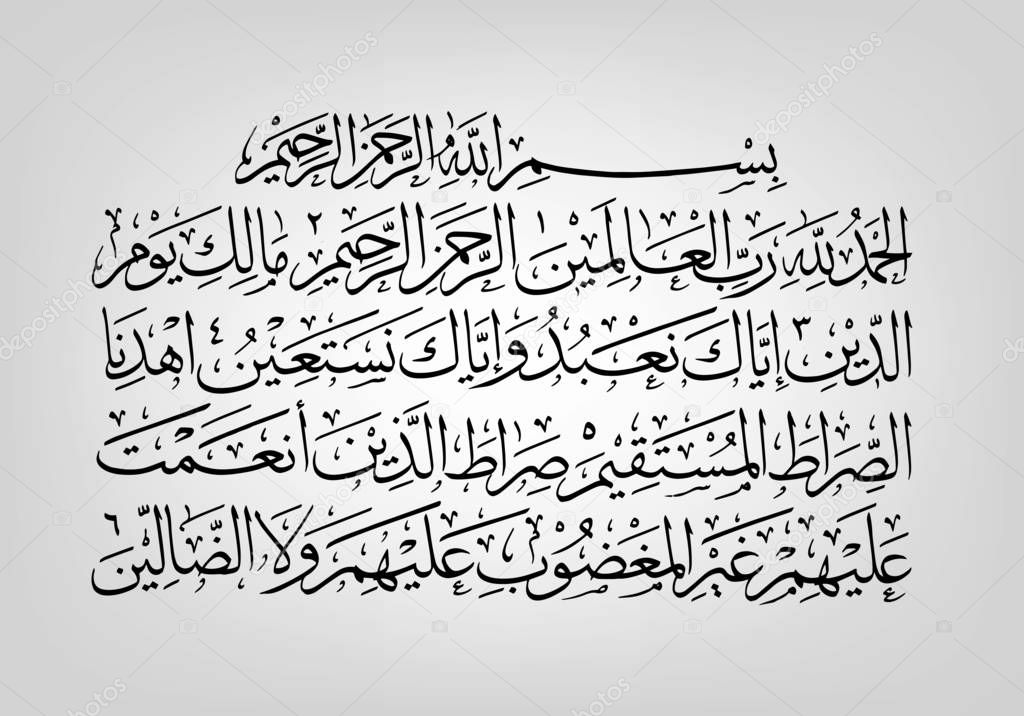 بِسْمِ اللَّهِ الرَّحْمَنِ الرَّحِيمِ
الْحَمْدُ لِلَّهِ رَبِّ الْعَالَمِينَ ١ الرَّحْمَنِ الرَّحِيمِ ٢ مَالِكِ يَوْمِ
الدِّينِ ٣ إِيَّاكَ نَعْبُدُ وَإِيَّاكَ نَسْتَعِينُ ٤ اهْدِنَا
الصِّرَاطَ الْمُسْتَقِيمَ ٥ صِرَاطَ الَّذِينَ أَنعَمْتَ
عَلَيْهِمْ غَيْرِ الْمَغْضُوبِ عَلَيْهِمْ وَلَا الضَّالِّينَ ٦
depositphotos